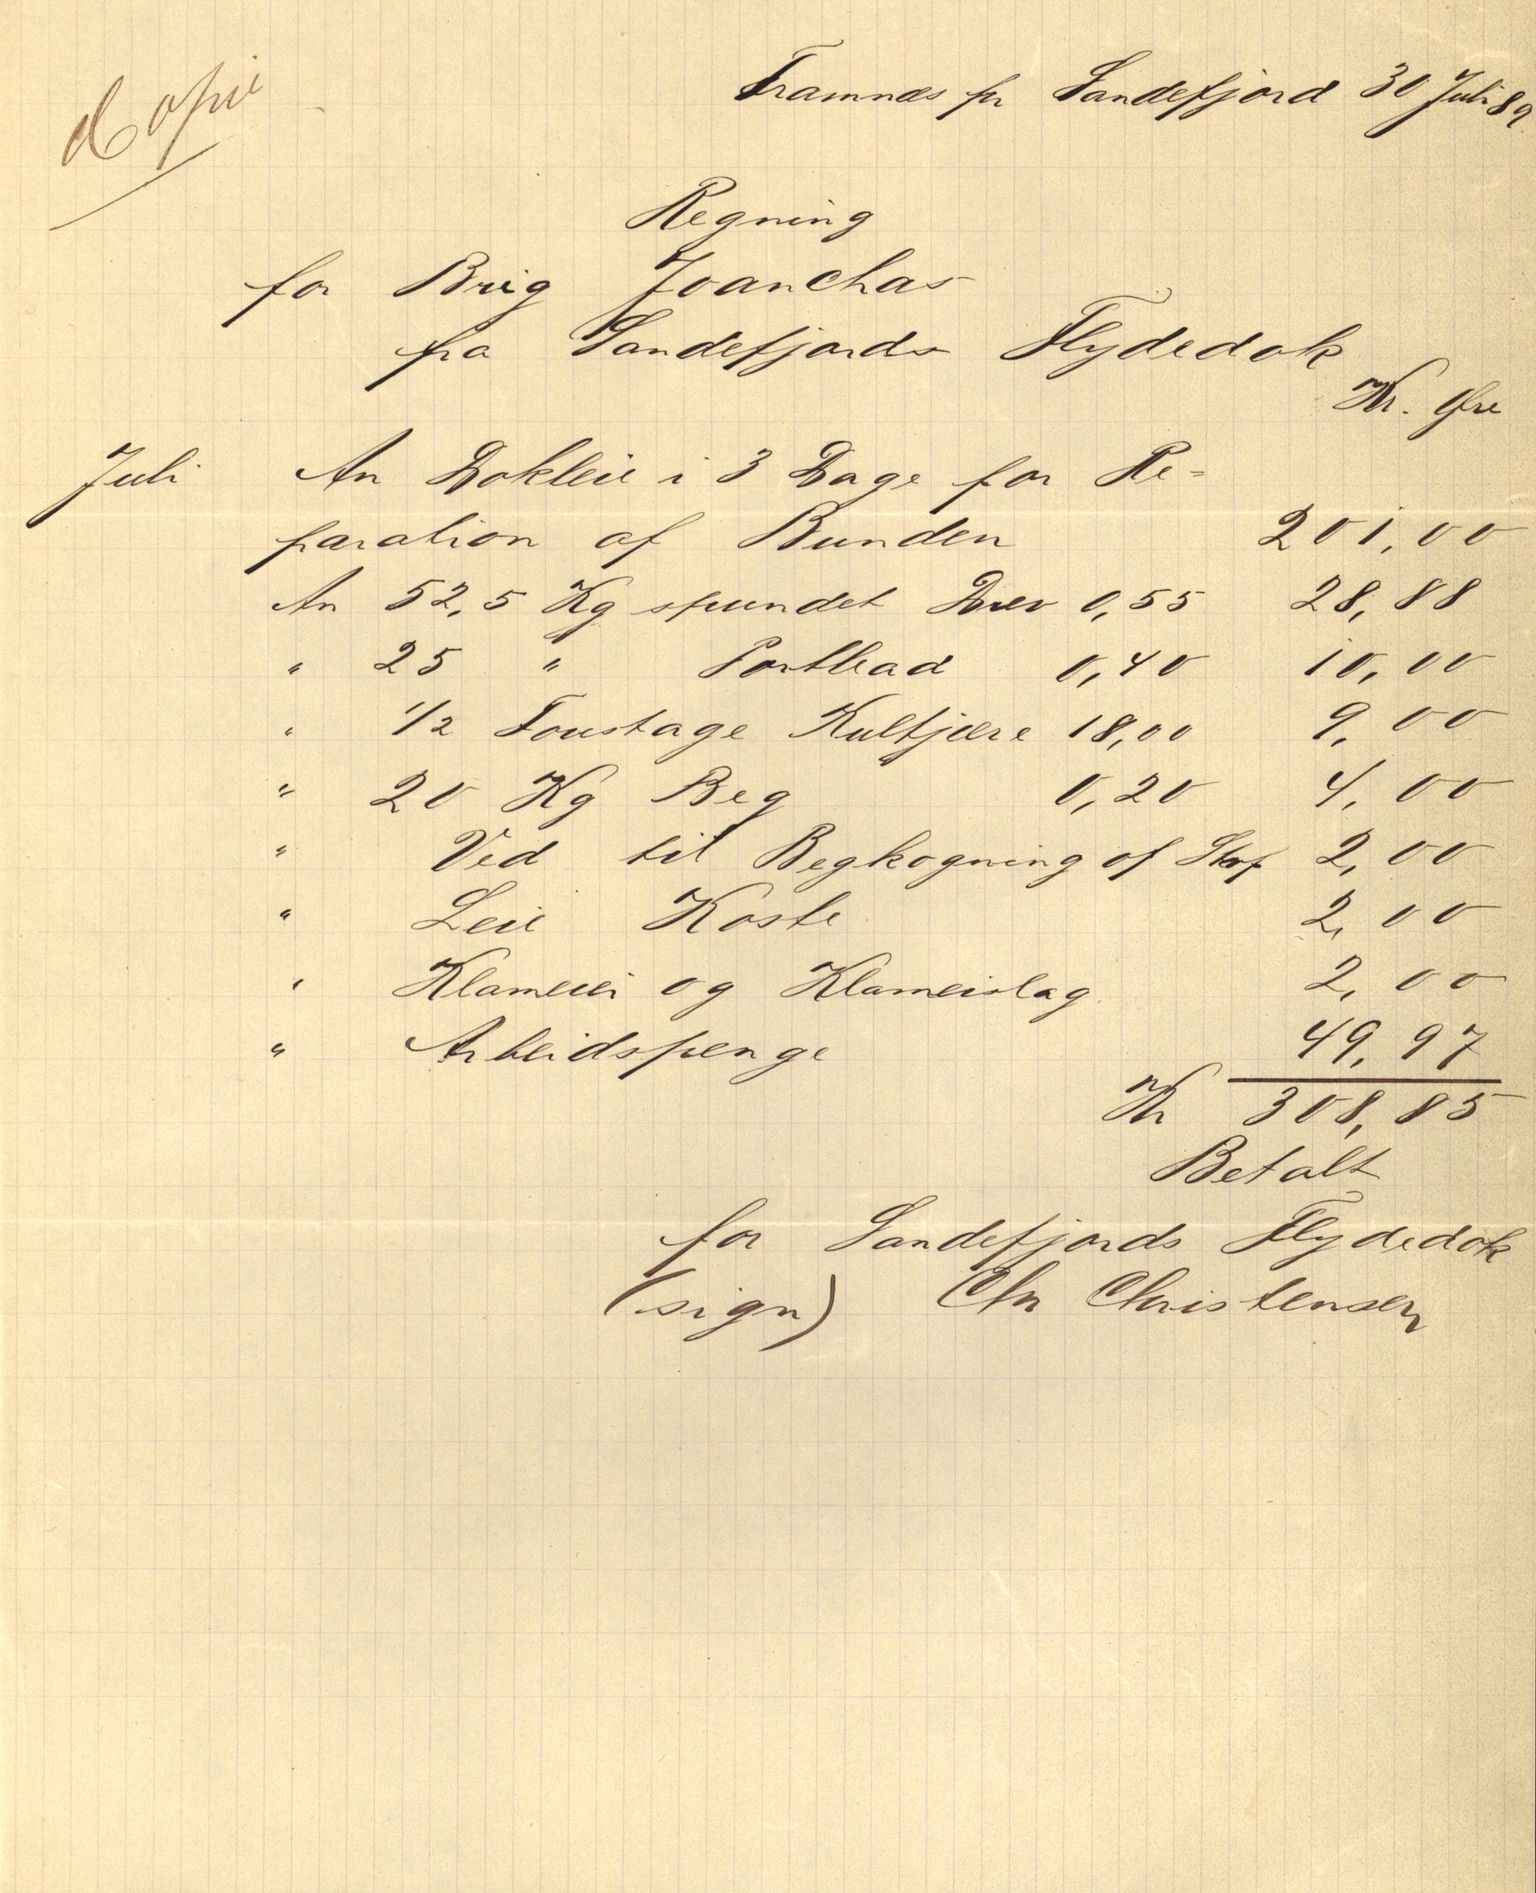 Copie
Framnæs pr Sandefjord 30 Juli 89
Regning
for Brig Joanchas
fra Sandefjords Flydedok
Kr. Øre
Juli An Dokleie i 3 Dage for Re-
paration af Bunden 201,00
An 52,5 Kg spundet Drev 0,55 28,88
" 25 " Portlead 0,40 10,00
" 1/2 Foustage Kultjære 18,00 9,00
" 20 Kg Beg 0,20 4,00
" Ved til Begkogning af 2,00
" Leie Koste 2,00
" og 2,00
" Arbeidspenge 49,97
Kr 308,85
Betalt
for Sandefjords Flydedok
(sign) Chr Christensen